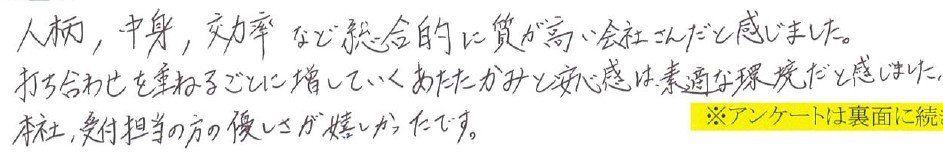 人柄, 中身, 効率 など総合的に質が高い会社さんだと感じました。
打ち合わせを重ねるごとに増していくあたたかみと安心感は素適な環境だと感じました。
本社, 受付担当の方の優しさが嬉しかったです。
※アンケートは裏面に続き